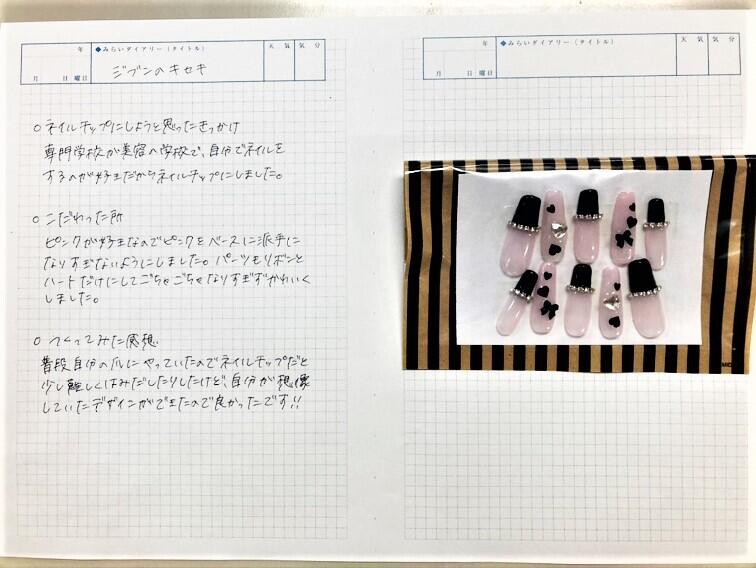 年
◆みらいダイアリー（タイトル）
天気
気分
月 日 曜日
ジブンのキセキ
○ネイルチップにしようと思ったきっかけ
専門学校が美容の学校で、自分でネイルを
するのが好きだからネイルチップにしました。
○こだわった所
ピンクが好きなのでピンクをベースに派手に
なりすぎないようにしました。パーツもリボンと
ハートだけにしてごちゃごちゃなりすぎずかわいく
しました。
○つくってみた感想
普段自分の爪にやっていたのでネイルチップだと
少し難しくはみだしたりしたけど、自分が想像
していたデザインができたので良かったです!!
年
◆みらいダイアリー（タイトル）
天気
気分
月 日 曜日